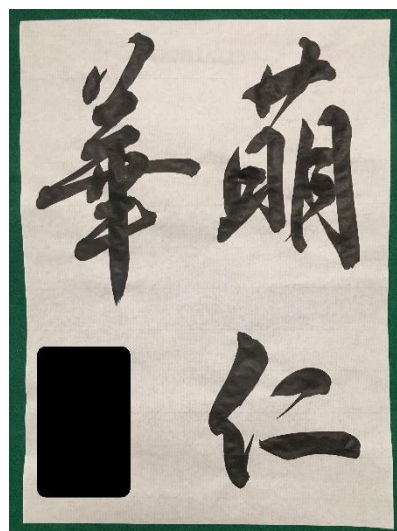 萌仁
華